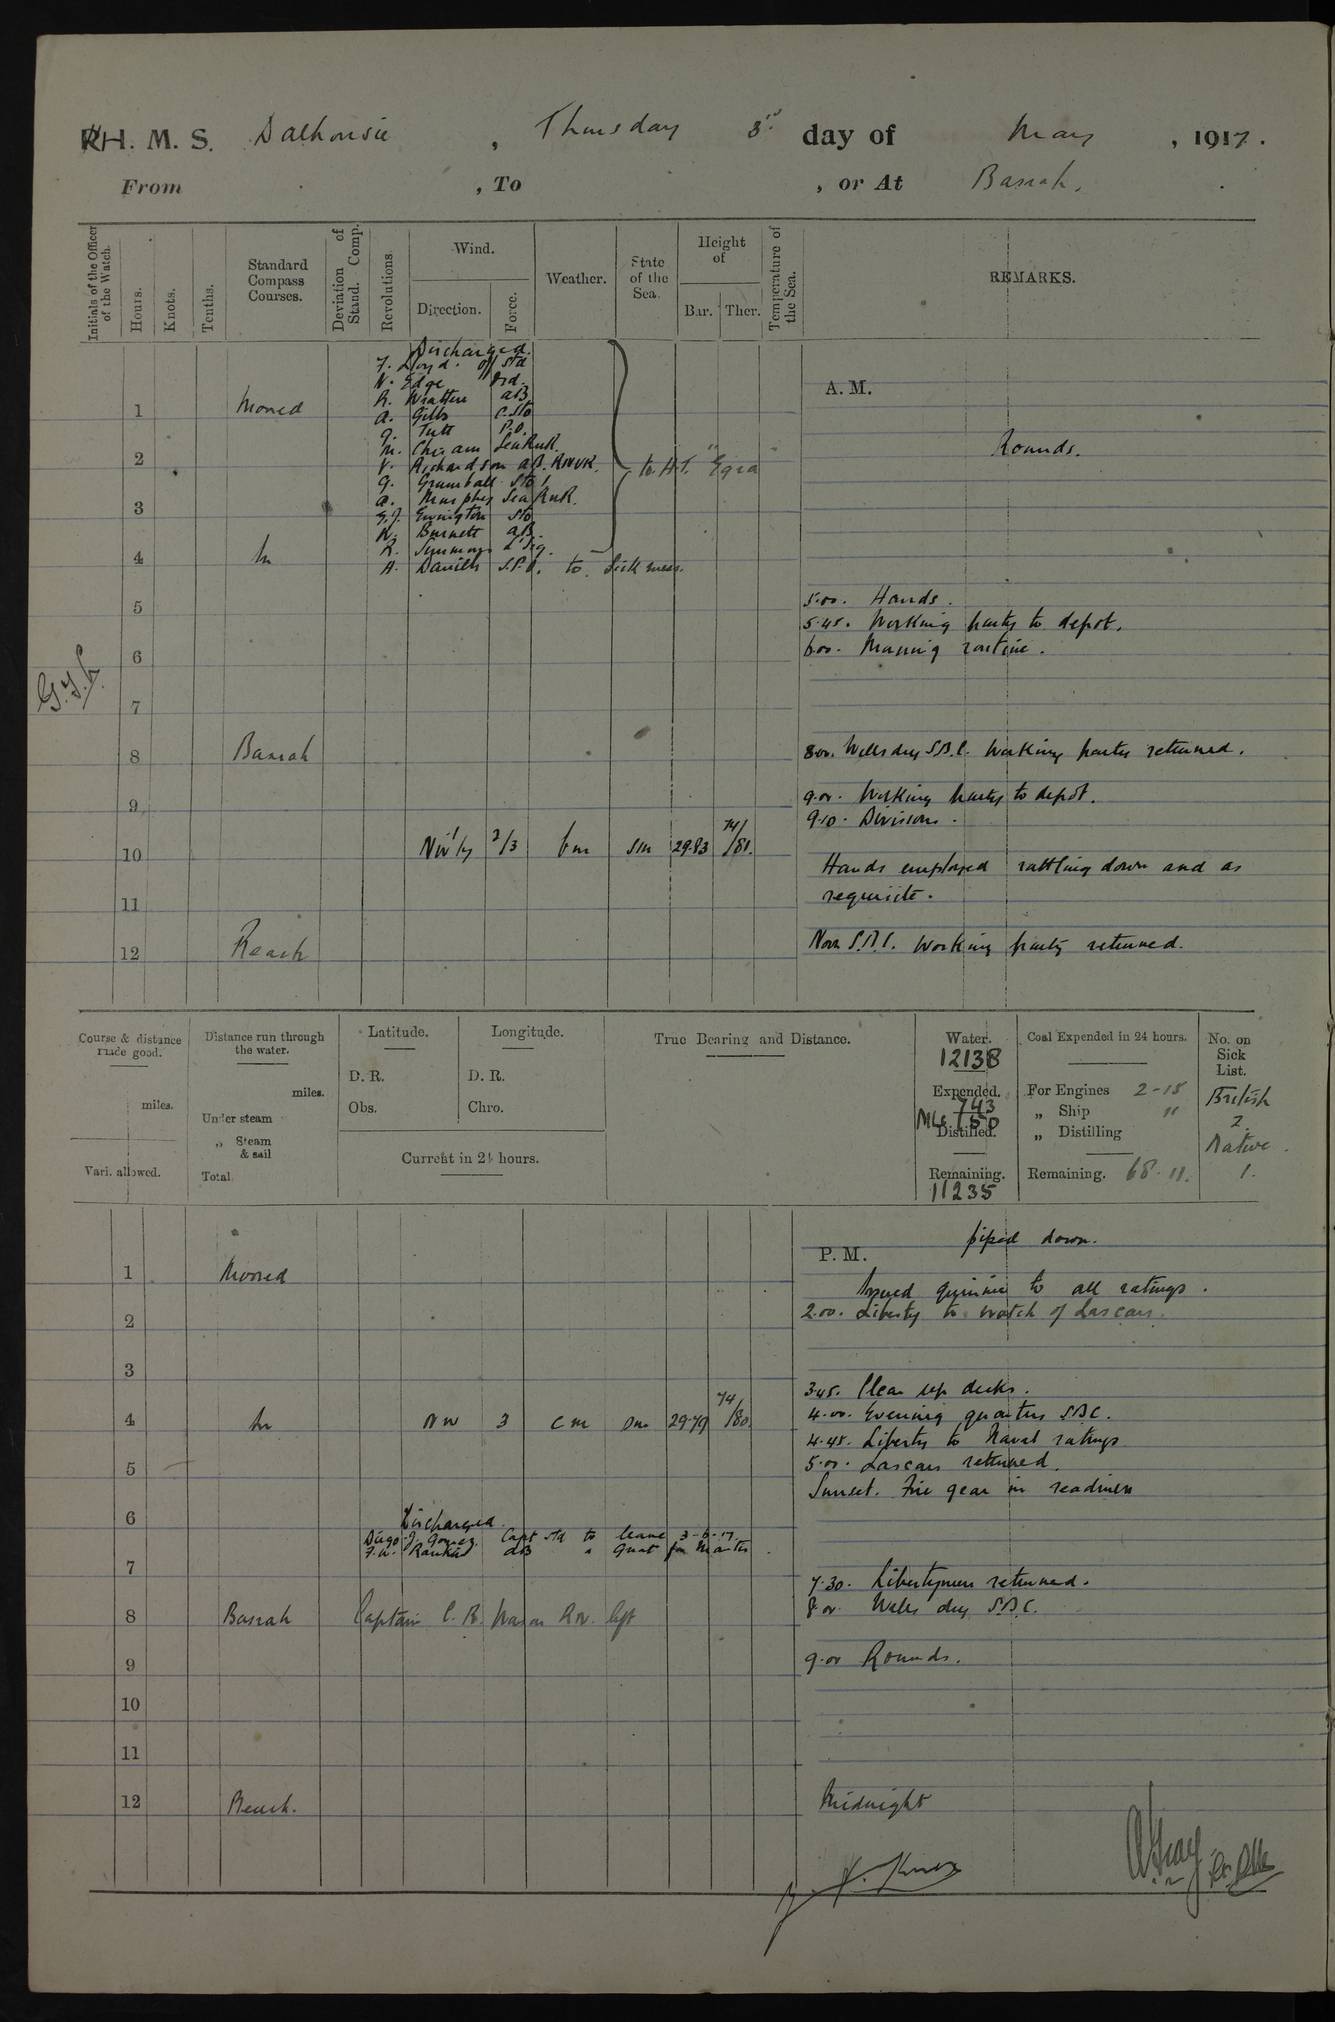 H. M. S. Dalhousie, Thursday 3rd day of May, 1917.
From , To , or At Basrah.
Initials of the Officer of the Watch.
Hours.
Knots.
Tenths.
Standard Compass Courses.
Deviation of Stand. Comp.
Revolutions.
Wind.
Direction.
Force.
Weather.
State of the Sea.
Height of
Bar. Ther.
Temperature of the Sea.
REMARKS.
Discharged.
F. Lloyd. Off Std
N. Edge Ord.
A. M.
1 Moored
R. Wratten AB
A. Gibbs C. Sto
G. Tutt P.O.
M. Chisam Sea RNR.
Rounds.
2
V. Richardson AB. RNVR. to H.T. "Egra"
G. Grumball Sto 1
A. Murphy Sea RNR.
3
G.J. Ewington Sto
N. Burnett AB.
R. Simmons L' Sig.
4 in
A. Daniels S.P.O. to Sick mess.
5
5.00. Hands.
5.45. Working party to depot.
6
6.00. Morning routine.
7
8 Basrah
8.00. Wells dry S.B.C. Working party returned.
9
9.00. Working party to depot.
9.10. Divisions.
10 NW'ly 2/3 bm sm 29.83 74/81.
Hands employed rattling down and as
11
requisite.
12 Reach
Noon S.B.C. Working party returned.
Course & distance made good.
miles.
Vari. allowed.
Distance run through the water.
miles.
Under steam
„ Steam & sail
Total
Latitude.
D. R.
Obs.
Longitude.
D. R.
Chro.
Current in 24 hours.
True Bearing and Distance.
Water.
12138
Expended.
743
150
Distilled.
Remaining.
11235
Coal Expended in 24 hours.
For Engines 2-18
„ Ship "
„ Distilling
Remaining. 68.11.
No. on Sick List.
British
2.
Native
1.
P. M.
piped down.
1 Moored
Issued quinine to all ratings.
2
2.00. Liberty to watch of Lascars.
3
3.45. Clear up decks.
4 in NW 3 cm sm 29.79 74/80.
4.00. Evening quarters S.B.C.
4.45. Liberty to Naval ratings
5
5.00. Lascars returned.
Sunset. Fire gear in readiness
6
Discharged.
Diego J. Gomez. Capt Std to leave 3-6-17.
7
7.30. Libertymen returned.
8 Basrah Captain C. R. Mason RN. left
8.00 Wells dry S.B.C.
9
9.00 Rounds.
10
11
12 Reach.
Midnight